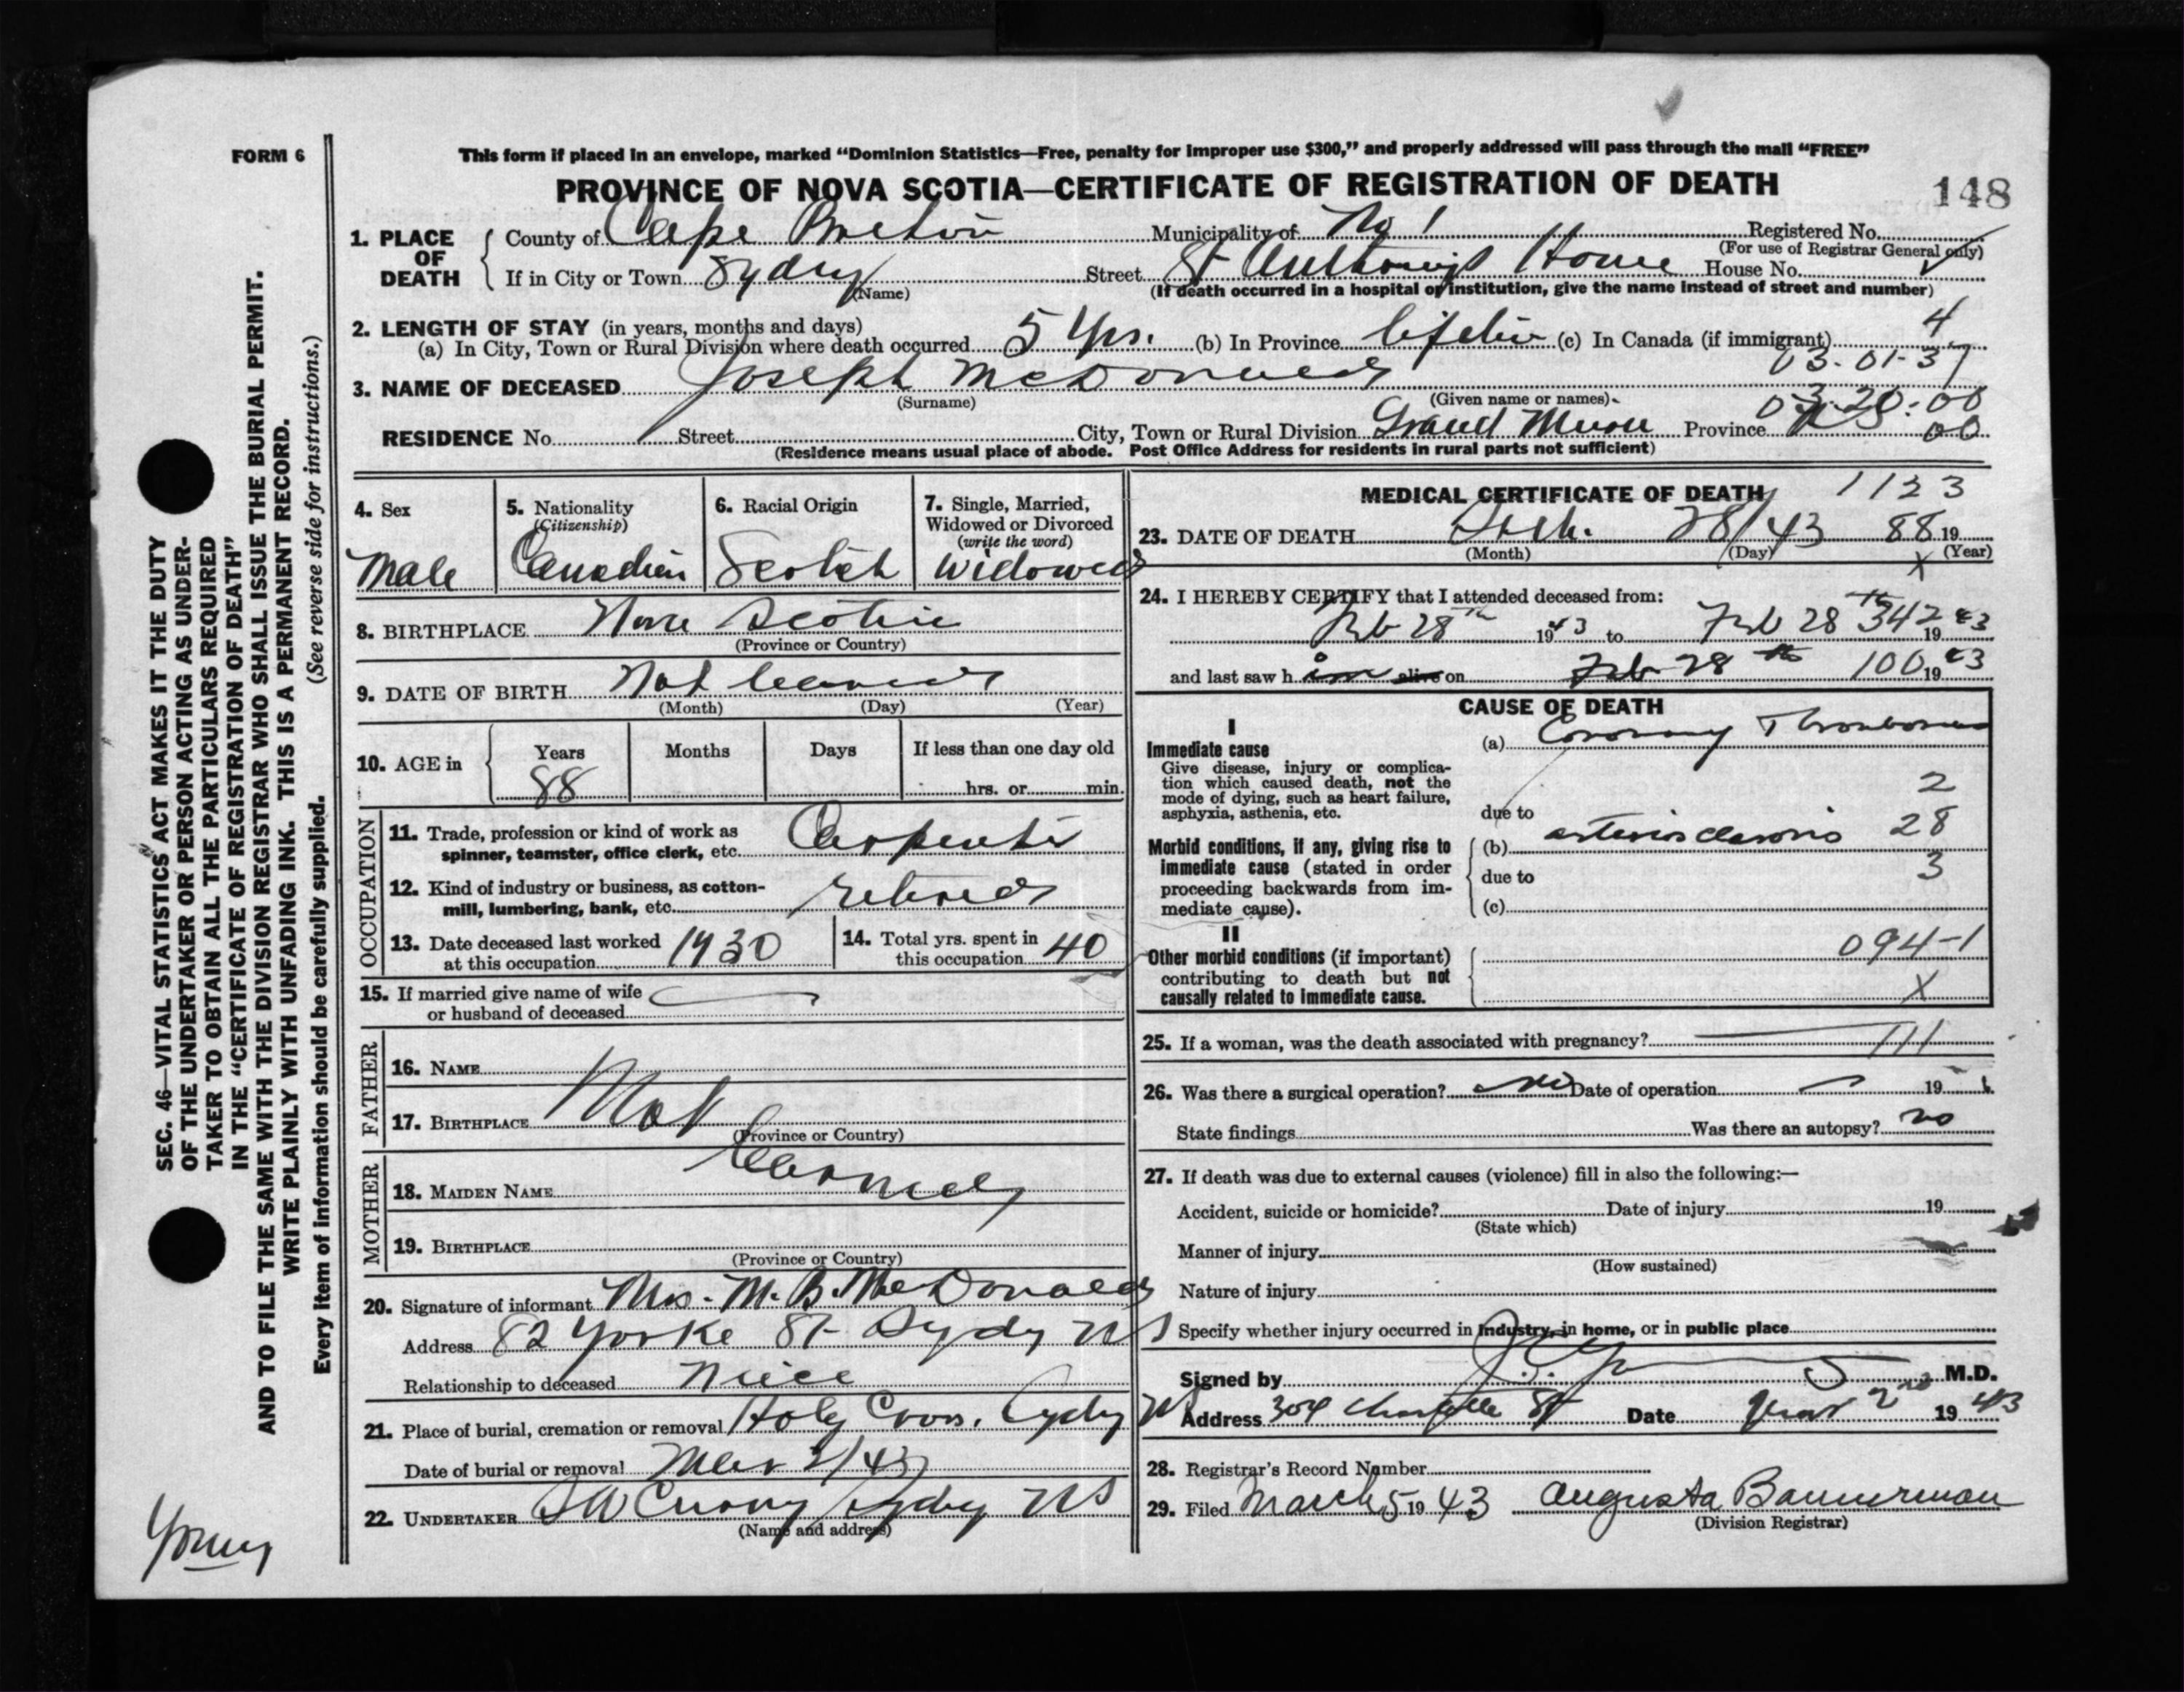 FORM 6
This form if placed in an envelope, marked “Dominion Statistics—Free, penalty for improper use $300,” and properly addressed will pass through the mail “FREE”
PROVINCE OF NOVA SCOTIA—CERTIFICATE OF REGISTRATION OF DEATH
148
1. PLACE OF DEATH
County of Cape Breton Municipality of No 1 Registered No.
(For use of Registrar General only)
If in City or Town Sydney Street St Anthony's Home House No.
(Name) (If death occurred in a hospital or institution, give the name instead of street and number)
2. LENGTH OF STAY (in years, months and days) 4
(a) In City, Town or Rural Division where death occurred 5 Yrs. (b) In Province lifetime (c) In Canada (if immigrant)
03-01-37
3. NAME OF DECEASED Joseph McDonald
(Surname) (Given name or names)
03-20-00
RESIDENCE No. Street City, Town or Rural Division Grand Province NS 00
(Residence means usual place of abode. Post Office Address for residents in rural parts not sufficient)
4. Sex
Male
5. Nationality
(Citizenship)
Canadian
6. Racial Origin
Scotch
7. Single, Married, Widowed or Divorced
(write the word)
Widowed
8. BIRTHPLACE Nova Scotia
(Province or Country)
9. DATE OF BIRTH Not learned
(Month) (Day) (Year)
10. AGE in Years Months Days If less than one day old
88 hrs. or min.
OCCUPATION
11. Trade, profession or kind of work as spinner, teamster, office clerk, etc. Carpenter
12. Kind of industry or business, as cotton-mill, lumbering, bank, etc. retired
13. Date deceased last worked at this occupation 1930
14. Total yrs. spent in this occupation 40
15. If married give name of wife or husband of deceased
FATHER
16. NAME
17. BIRTHPLACE Not
(Province or Country)
MOTHER
learned
18. MAIDEN NAME
19. BIRTHPLACE
(Province or Country)
20. Signature of informant Mrs. M. B. MacDonald
Address 82 Yorke St Sydney NS
Relationship to deceased Niece
21. Place of burial, cremation or removal Holy Cross, Sydney NS
Date of burial or removal Mar 2/43
22. UNDERTAKER Sydney NS
(Name and address)
MEDICAL CERTIFICATE OF DEATH 1123
23. DATE OF DEATH Feb. 28/43 88 19
(Month) (Day) (Year)
X
24. I HEREBY CERTIFY that I attended deceased from:
Feb 28th 1943 to Feb 28th 342 19 43
and last saw h im alive on Feb 28th 100 19 43
CAUSE OF DEATH
I
Immediate cause
Give disease, injury or complication which caused death, not the mode of dying, such as heart failure, asphyxia, asthenia, etc.
(a) Coronary Thrombosis
2
due to
Morbid conditions, if any, giving rise to immediate cause (stated in order proceeding backwards from immediate cause).
(b) arteriosclerosis 28
due to 3
(c)
II
Other morbid conditions (if important) contributing to death but not causally related to immediate cause.
094-1
X
25. If a woman, was the death associated with pregnancy? 111
26. Was there a surgical operation? no Date of operation 19
State findings Was there an autopsy? no
27. If death was due to external causes (violence) fill in also the following:—
Accident, suicide or homicide? Date of injury 19
(State which)
Manner of injury
(How sustained)
Nature of injury
Specify whether injury occurred in industry, in home, or in public place
Signed by M.D.
Address 304 Charlotte St Date Mar 2nd 1943
28. Registrar's Record Number
29. Filed March 5 1943 Augusta Bannerman
(Division Registrar)
SEC. 46—VITAL STATISTICS ACT MAKES IT THE DUTY
OF THE UNDERTAKER OR PERSON ACTING AS UNDER-
TAKER TO OBTAIN ALL THE PARTICULARS REQUIRED
IN THE “CERTIFICATE OF REGISTRATION OF DEATH”
AND TO FILE THE SAME WITH THE DIVISION REGISTRAR WHO SHALL ISSUE THE BURIAL PERMIT.
WRITE PLAINLY WITH UNFADING INK. THIS IS A PERMANENT RECORD.
Every item of information should be carefully supplied. (See reverse side for instructions.)
Young